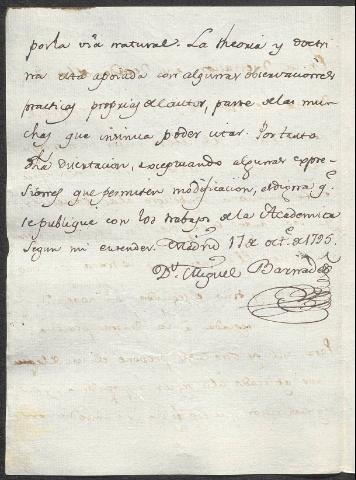 por la via natural. La theoria y doctri
na està apoiada con algunas observaciones
practicas proprias del autor, parte de las mu
chas que insinua poder citar. Por tanto
dha disertacion, exceptuando algunas expre
siones que permiten modificacion, es digna q.e
se publique con los trabajos de la Academica
segun mi entender. Madrid 17 de oct.e de 1795.
D.r Miguel Barnades